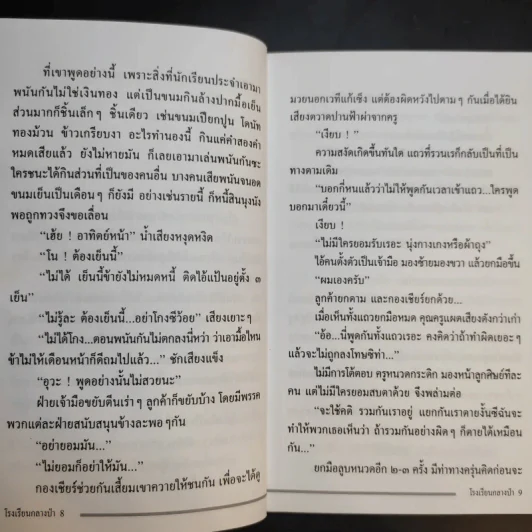 ที่เขาพูดอย่างนี้ เพราะสิ่งที่นักเรียนประจำเอามา
พนันกันไม่ใช่เงินทอง แต่เป็นขนมกินล้างปากมื้อเย็น
ส่วนมากก็ชิ้นเล็กๆ ชิ้นเดียว เช่นขนมเปียกปูน โดนัท
ทองม้วน ข้าวเกรียบงา อะไรทำนองนี้ กินแค่คำสองคำ
หมดเสียแล้ว ยังไม่หายมัน ก็เลยเอามาเล่นพนันกันซะ
ใครชนะได้กินส่วนที่เป็นของคนอื่น บางคนเสียพนันจนอด
ขนมเย็นเป็นเดือนๆ ก็ยังมี อย่างเช่นรายนี้ ก็หนี้สินนุงนัง
พอถูกทวงจึงขอเลื่อน
“เฮ้ย ! อาทิตย์หน้า” น้ำเสียงหงุดหงิด
“โน ! ต้องเย็นนี้”
“ไม่ได้ เย็นนี้ข้ายังไม่หมดหนี้ ติดไอ้แป้นอยู่ตั้ง ๓
เย็น”
“ไม่รู้ละ ต้องเย็นนี้...อย่าโกงซีว้อย” เสียงเยาะๆ
“ไม่ได้โกง...ตอนพนันกันไม่ตกลงนี่หว่า ว่าเอามื้อไหน
ข้าไม่ให้เดือนหน้าก็ดีถมไปแล้ว...” ชักเสียงแข็ง
“อุวะ ! พูดอย่างนั้นไม่สวยนะ”
ฝ่ายเจ้ามือขยับตีนเร่าๆ ลูกค้าก็ขยับบ้าง โดยมีพรรค
พวกแต่ละฝ่ายสนับสนุนข้างละพอๆกัน
“อย่ายอมมัน...”
“ไม่ยอมก็อย่าให้มัน...”
กองเชียร์ช่วยกันเสี้ยมเขาควายให้ชนกัน เพื่อจะได้ดู
โรงเรียนกลางป่า 8
มวยนอกเวทีแก้เซ็ง แต่ต้องผิดหวังไปตามๆ กันเมื่อได้ยิน
เสียงตวาดปานฟ้าผ่าจากครู
“เงียบ !”
ความสงัดเกิดขึ้นทันใด แถวที่รวนเรก็กลับเป็นที่เป็น
ทางตามเดิม
“บอกกี่หนแล้วว่าไม่ให้พูดกันเวลาเข้าแถว...ใครพูด
บอกมาเดี๋ยวนี้”
เงียบ !
“ไม่มีใครยอมรับเรอะ นุ่งกางเกงหรือผ้าถุง”
ไอ้คนตั้งตัวเป็นเจ้ามือ มองซ้ายมองขวา แล้วยกมือขึ้น
“ผมเองครับ”
ลูกค้ายกตาม และกองเชียร์ยกด้วย...
เมื่อเห็นทั้งแถวยกมือหมด คุณครูแผดเสียงดังกว่าเก่า
“อ้อ...นี่พูดกันทั้งแถวเรอะ คงคิดว่าถ้าทำผิดเยอะๆ
แล้วจะไม่ถูกลงโทษซีท่า...”
ไม่มีการโต้ตอบ ครูหนวดกระดิก มองหน้าลูกศิษย์ทีละ
คน แต่ไม่มีใครยอมสบตาด้วย จึงพล่ามต่อ
“จะใช้คติ รวมกันเราอยู่ แยกกันเราตายงั้นซีฉันจะ
ทำให้พวกเธอเห็นว่า ถ้ารวมกันอย่างผิดๆ ก็ตายได้เหมือน
กัน...”
ยกมือลูบหนวดอีก ๒-๓ ครั้ง มีท่าทางครุ่นคิดก่อนจะ
โรงเรียนกลางป่า 9